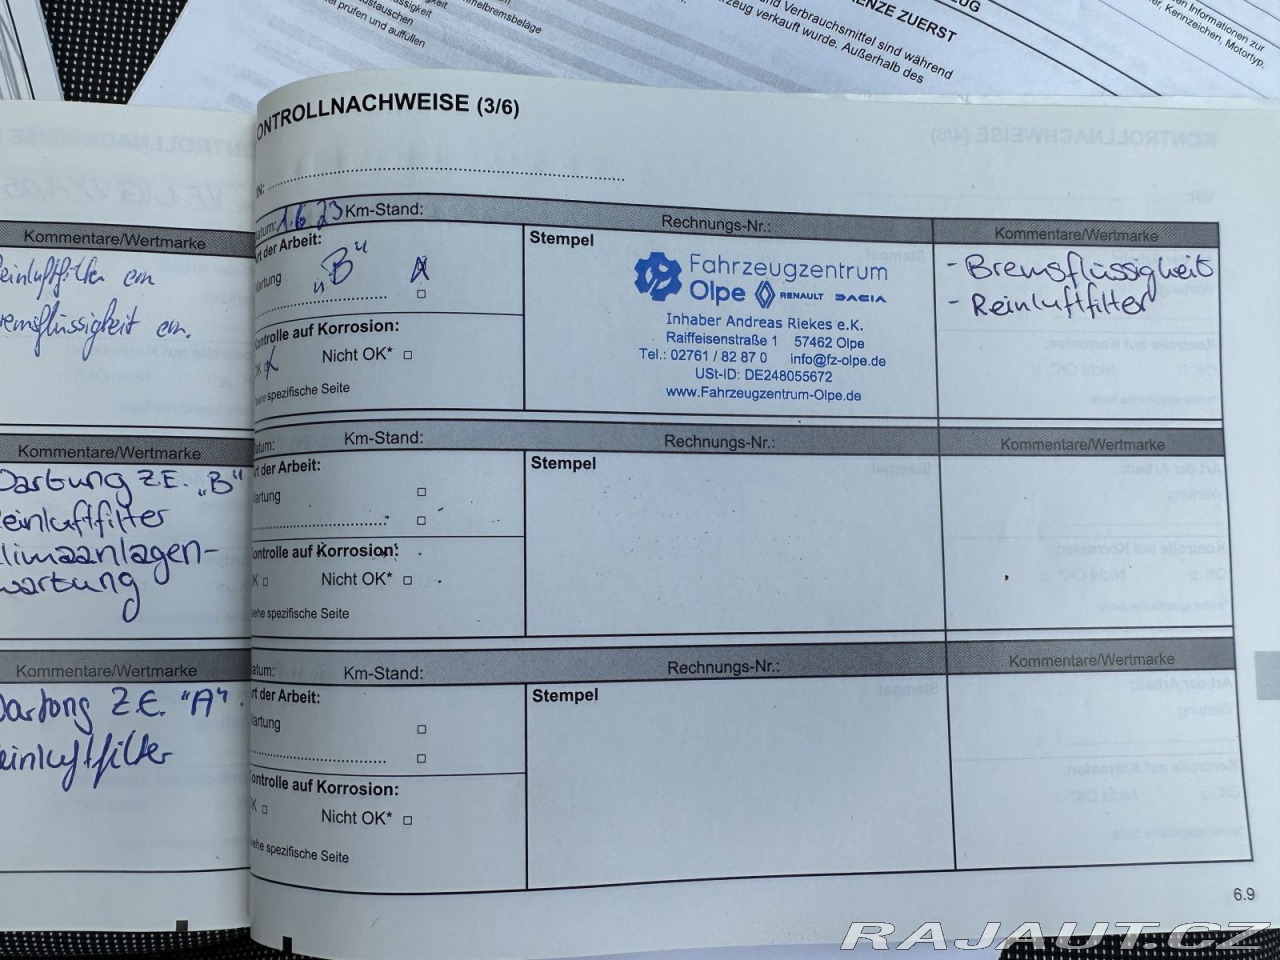 mmelbremsbeläge
sigkeit
stauschen
sigkeit
el prüfen und auffüllen
ENZE ZUERST
und Verbrauchsmittel sind während
zeug verkauft wurde. Außerhalb des
en Informationen zur
Kennzeichen, Motortyp,
ONTROLLNACHWEISE (3/6)
KONTROLLNACHWEISE (4/6)
IN:
Kommentare/Wertmarke
einluftfilter ern
remsflüssigkeit ern.
Kommentare/Wertmarke
Wartung Z.E. „B“
einluftfilter
limaanlagen-
wartung
Kommentare/Wertmarke
Wartung Z.E. "A".
einluftfilter
atum: 1.6.23 Km-Stand: Rechnungs-Nr.: Kommentare/Wertmarke
rt der Arbeit:
artung „B“
Stempel
Fahrzeugzentrum
Olpe RENAULT DACIA
Inhaber Andreas Riekes e.K.
Raiffeisenstraße 1 57462 Olpe
Tel.: 02761 / 82 87 0 info@fz-olpe.de
USt-ID: DE248055672
www.Fahrzeugzentrum-Olpe.de
- Bremsflüssigkeit
- Reinluftfilter
ontrolle auf Korrosion:
OK X Nicht OK*
siehe spezifische Seite
atum: Km-Stand: Rechnungs-Nr.: Kommentare/Wertmarke
rt der Arbeit:
artung
Stempel
ontrolle auf Korrosion:
K Nicht OK*
ehe spezifische Seite
atum: Km-Stand: Rechnungs-Nr.: Kommentare/Wertmarke
rt der Arbeit:
artung
Stempel
ontrolle auf Korrosion:
K Nicht OK*
ehe spezifische Seite
6.9
RAJAUT.CZ